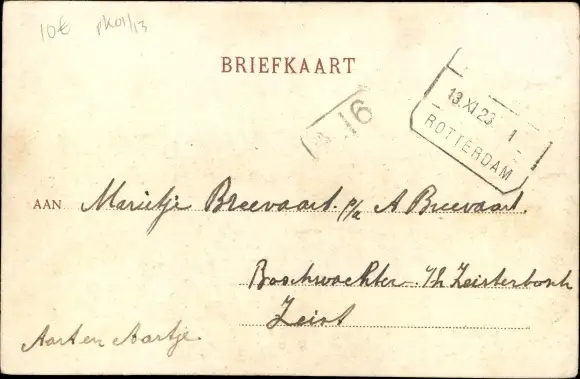 10€ pk01/13
BRIEFKAART
13.XI 23 1
ROTTERDAM
16
AAN Marietje Breevaart. p/a A Breevaart.
Boschwachter. 't Zeisterbosch
Zeist
Aart en Aartje.